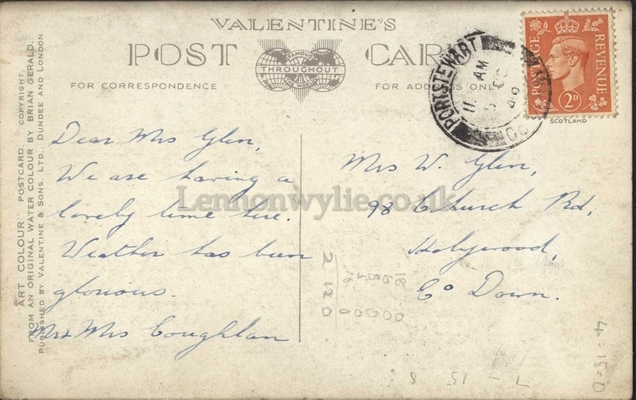 VALENTINE'S
POST CARD
FAMOUS
THROUGHOUT
THE WORLD
FOR CORRESPONDENCE
FOR ADDRESS ONLY
PORTSTEWART
11 AM
CO
POSTAGE REVENUE
2D
SCOTLAND
"ART COLOUR" POSTCARD. COPYRIGHT.
FROM AN ORIGINAL WATER COLOUR BY BRIAN GERALD.
PUBLISHED BY VALENTINE & SONS, LTD. DUNDEE AND LONDON
Dear Mrs Glen,
We are having a
lovely time here.
Weather has been
glorious.
Mr & Mrs Coughlan
Mrs W. Glen,
98 Church Rd,
Holywood,
Co Down.
Lennonwylie.co.uk
2 12 0
4-15-0
7 - 15 8